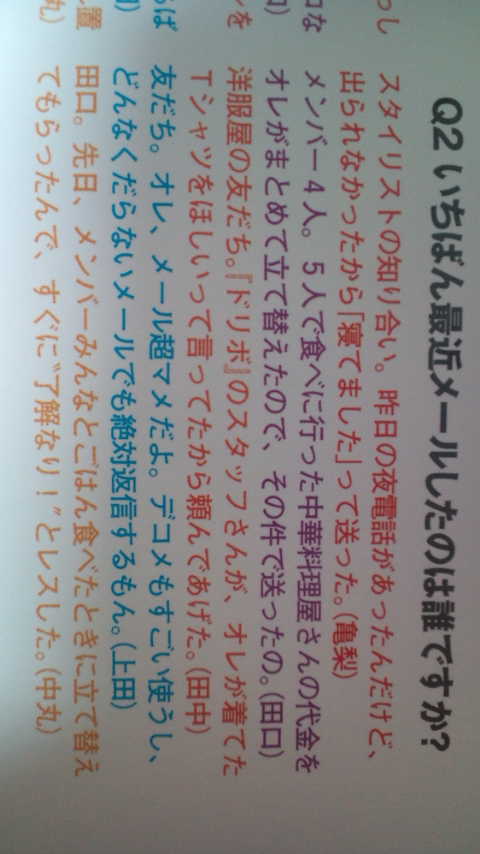 Q2 いちばん最近メールしたのは誰ですか?
スタイリストの知り合い。昨日の夜電話があったんだけど、
出られなかったから「寝てました」って送った。(亀梨)
メンバー4人。5人で食べに行った中華料理屋さんの代金を
オレがまとめて立て替えたので、その件で送ったの。(田口)
洋服屋の友だち。『ドリボ』のスタッフさんが、オレが着てた
Tシャツをほしいって言ってたから頼んであげた。(田中)
友だち。オレ、メール超マメだよ。デコメもすごい使うし、
どんなくだらないメールでも絶対返信するもん。(上田)
田口。先日、メンバーみんなとごはん食べたときに立て替え
てもらったんで、すぐに“了解なり!”とレスした。(中丸)